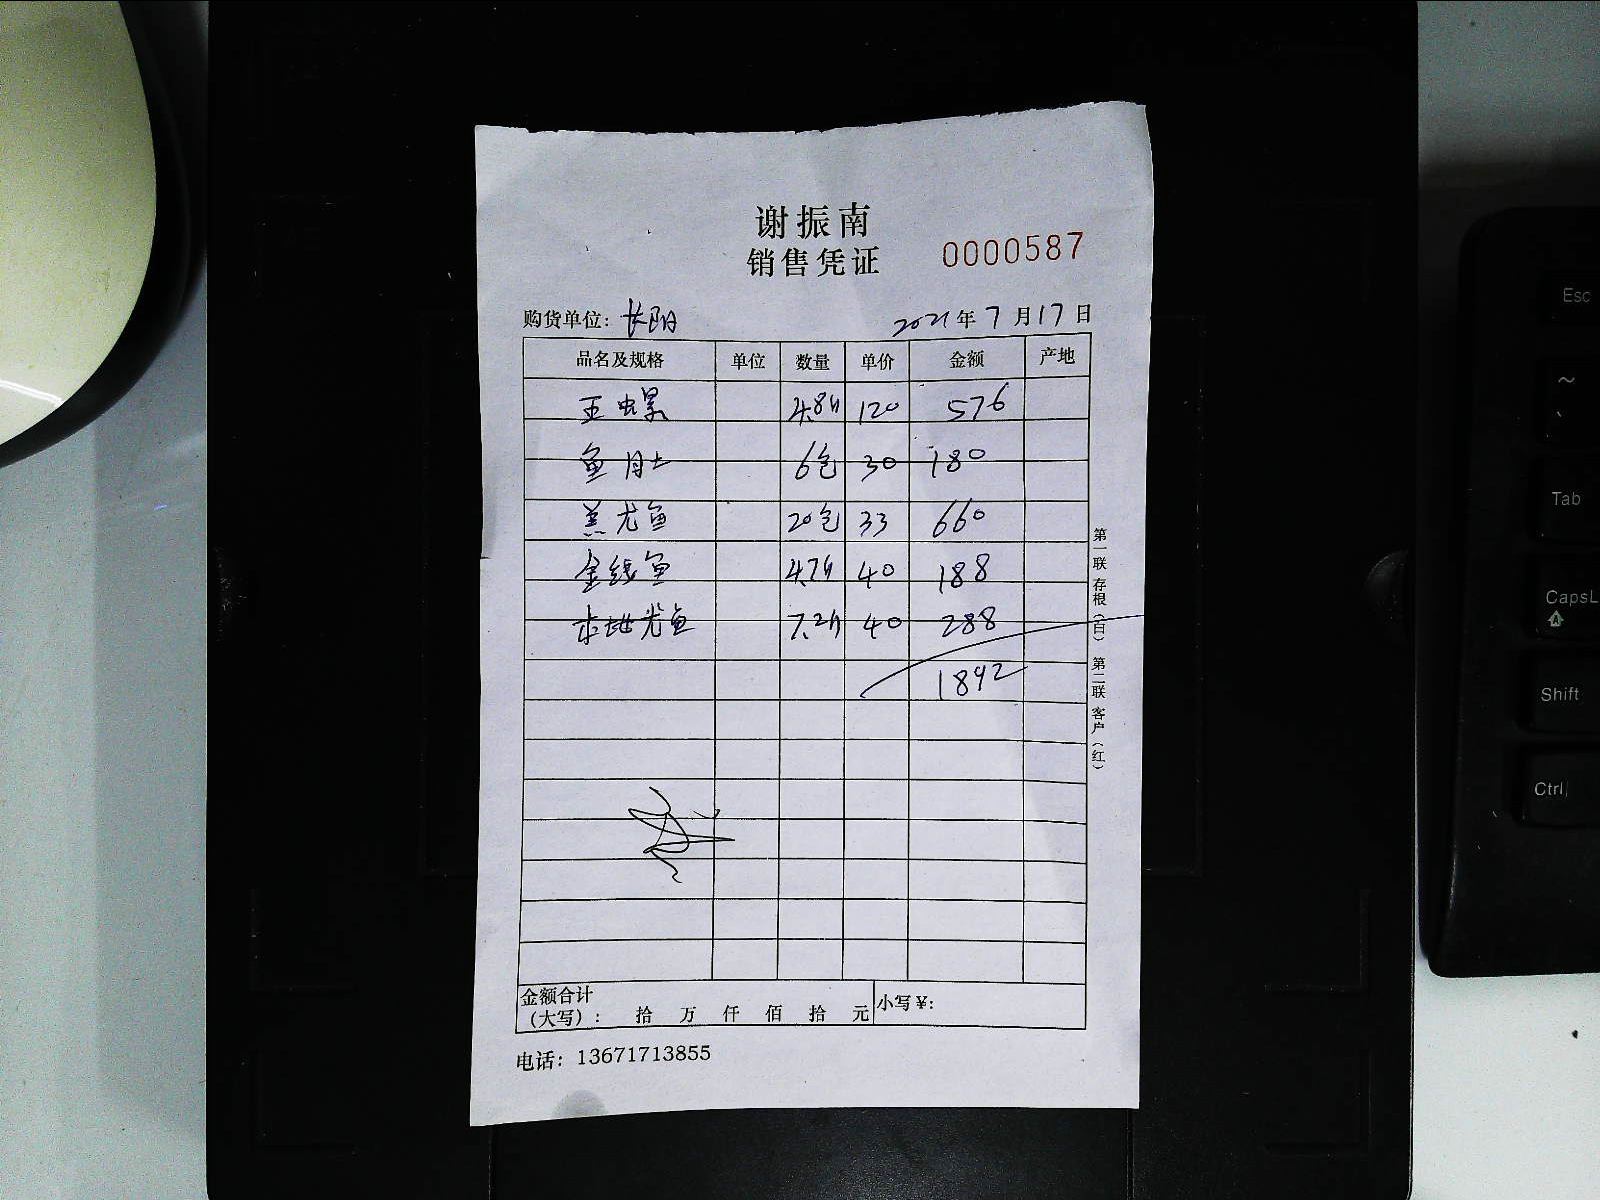 谢振南
销售凭证 0000587
购货单位: 长阳 2021年7月17日
品名及规格 单位 数量 单价 金额 产地
玉螺 4.8斤 120 576
鱼肚 6包 30 180
黑尤鱼 20包 33 660
金线鱼 4.7斤 40 188
本地光鱼 7.2斤 40 288
1892
金额合计
(大写): 拾 万 仟 佰 拾 元 小写¥:
电话: 13671713855
第一联 存根(白) 第二联 客户(红)
Esc
~
Tab
CapsL
Shift
Ctrl